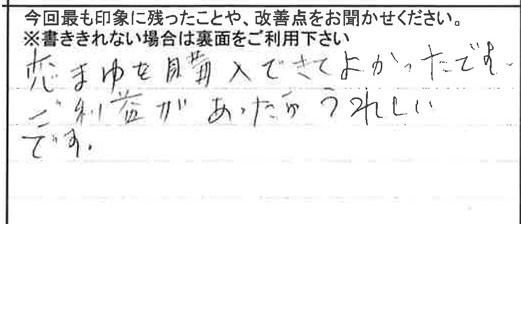 今回最も印象に残ったことや、改善点をお聞かせください。
※書ききれない場合は裏面をご利用下さい
恋まゆを購入できてよかったです。
ご利益があったらうれしい
です。